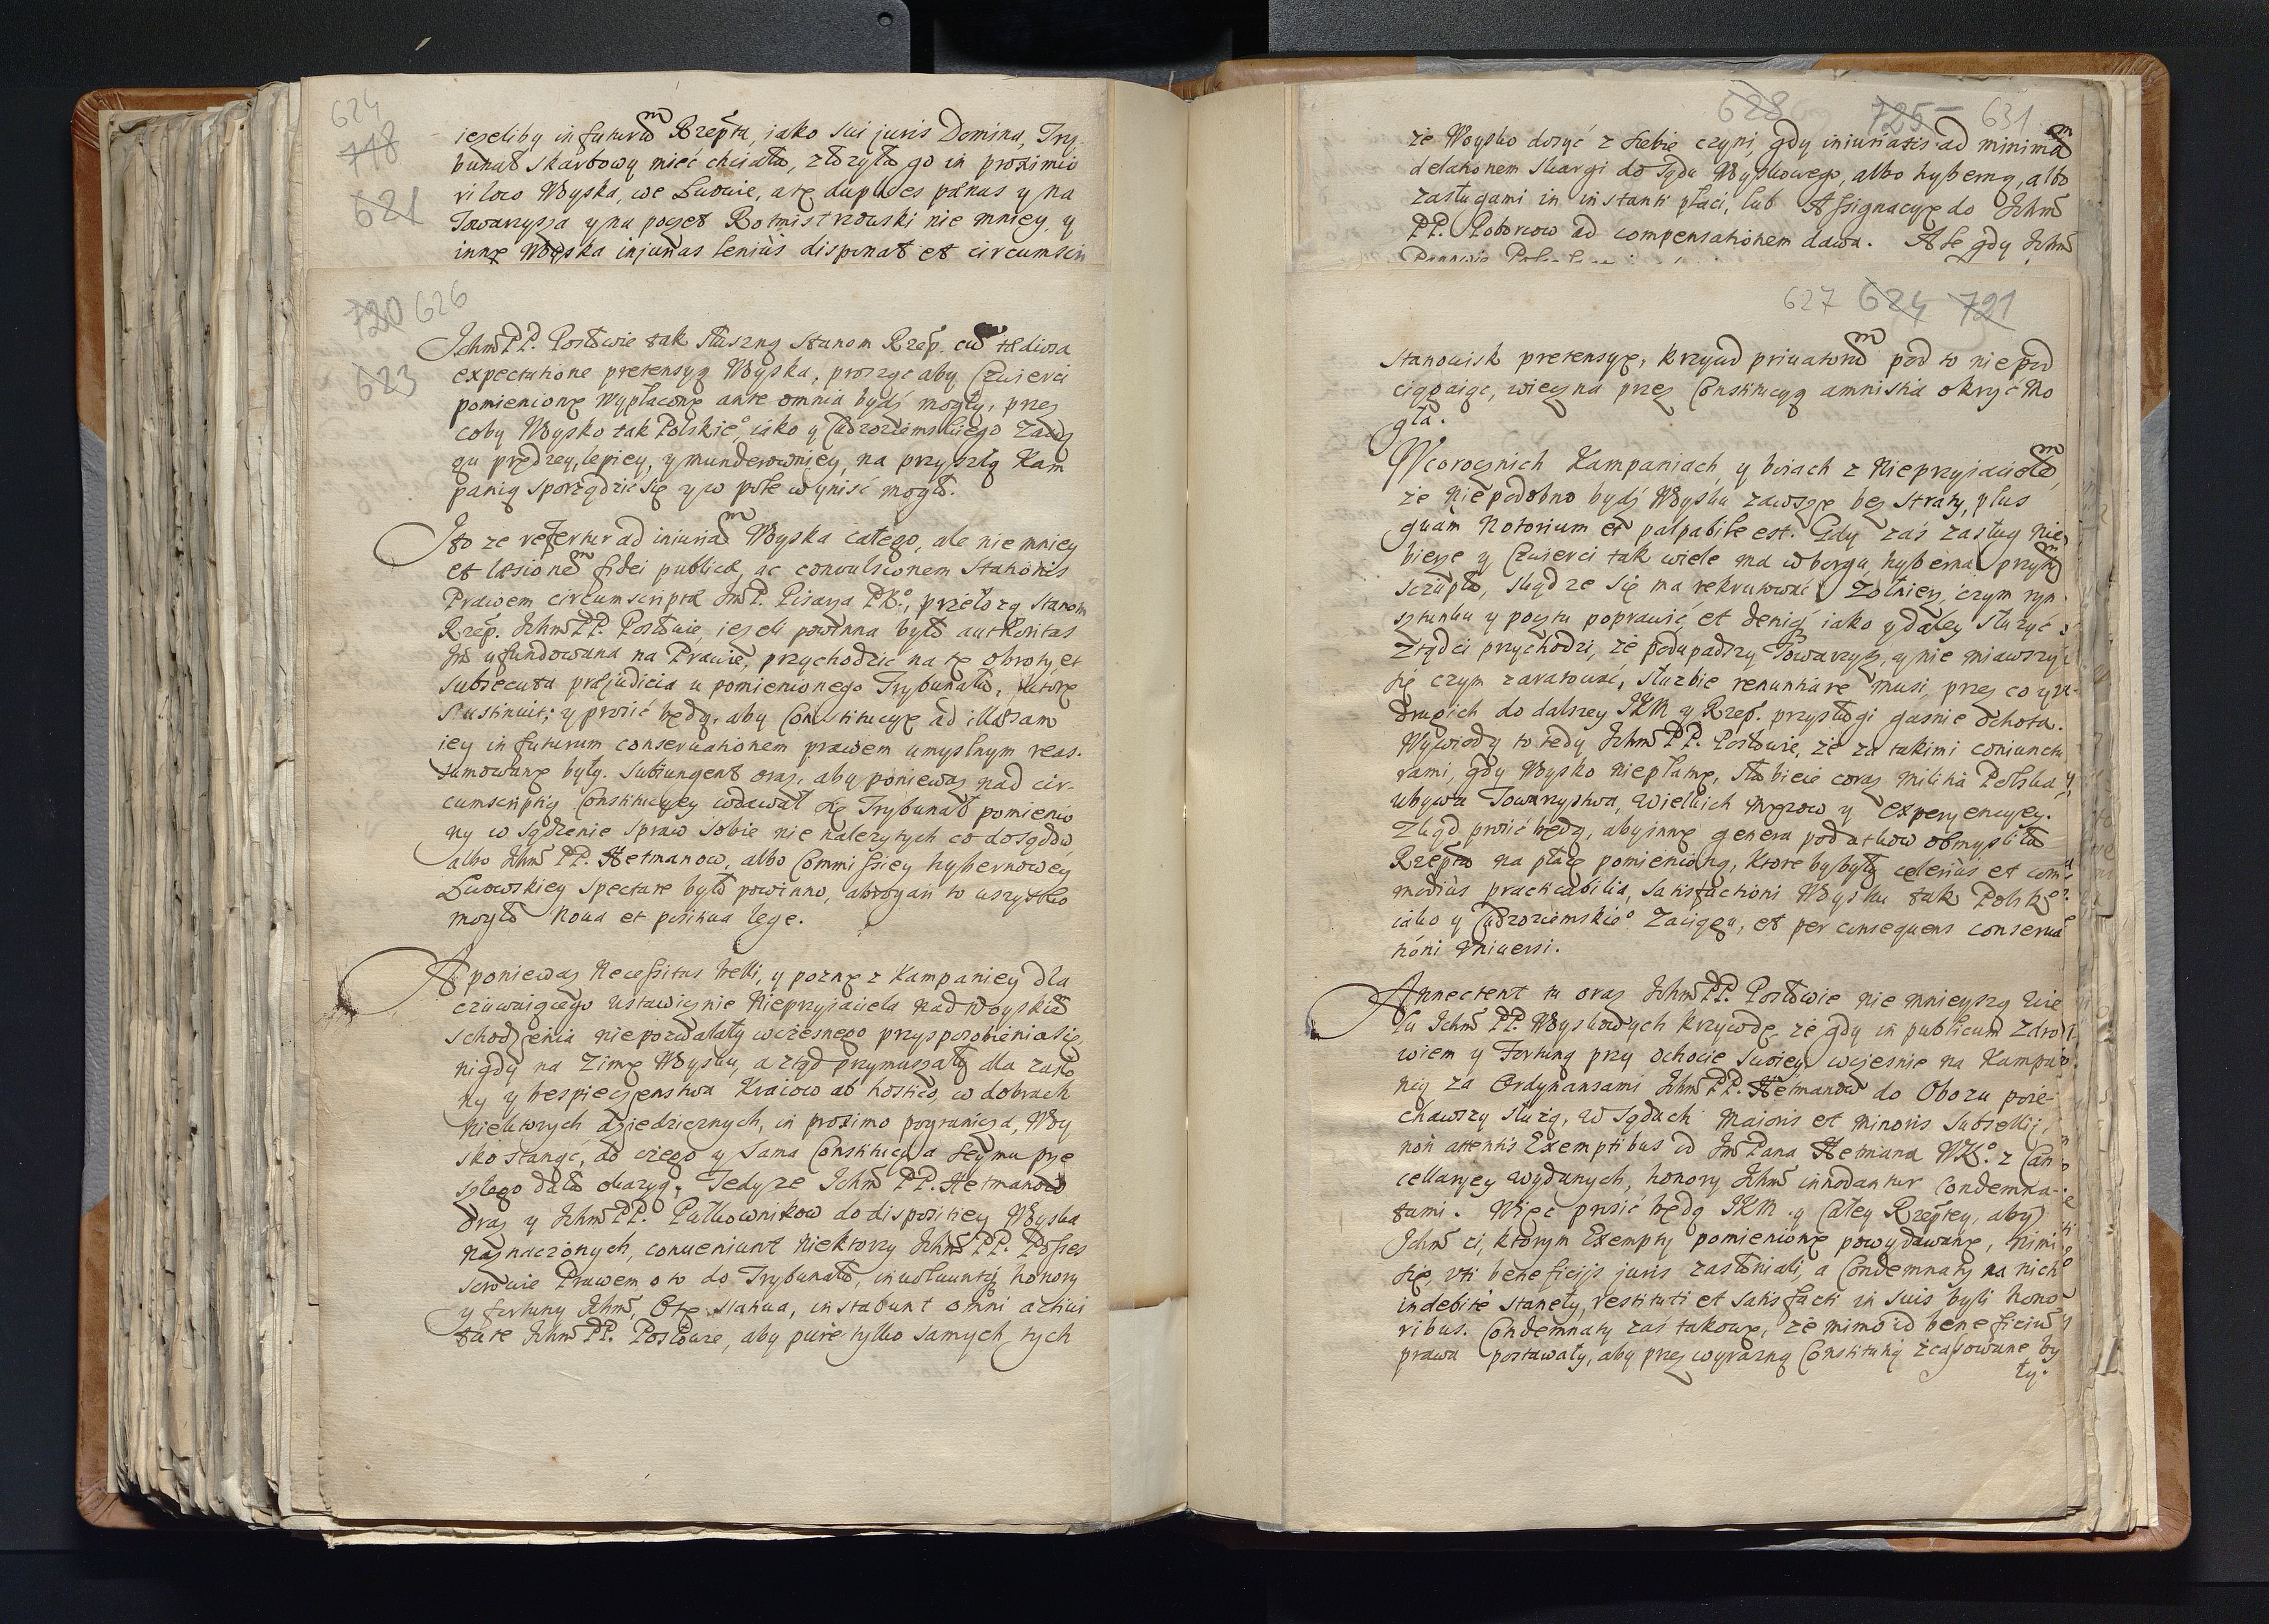 624
718
621
ieżeliby in futurum Rzepta, iako sui juris Domina, Try-
bunał Skarbowy mieć chciała, złożyła go in proximio
ri loco Woyska, we Lwowie, a tę duplices pænas y na
Towarzysza y na poczet Rotmistrzowski nie mniey, y
inne Woyska injurias lenius disponat et circumscri
720 626
623
Ichmć PP. Posłowie tak słuszną Stanom Rzep. cum tædiosa
expectatione pretensyą Woyska, prosząc aby Czwierci
pomienione wypłacone ante omnia bydź mogły, przez
coby Woysko tak Polskiego, iako y Cudzoziemskiego Zacią
gu prędzey, lepiey, y munderowniey, na przyszłą Kam
panią sporządzić się y w pole wyniść mogło.
Ito ze refertur ad iniuriam Woyska całego, ale nie mniey
et læsionem fidei publicæ, ac convulsionem Stationis
Prawem circumscriptæ Jmć P. Pisarza PK., przełożą Stanom
Rzep. Ichmć PP. Posłowie, ieżeli powinna była authoritas
Jmć ufundowana na Prawie, przychodzić na te obroty et
subsecuta præjudicia u pomienionego Trybunału, które
sustinuit; y prosić będą, aby Constitucye ad illæsam
iey in futurum conservationem prawem umyślnym reas-
sumowane były. Subiungent oraz, aby ponieważ nad cir-
cumscriptią Constitucyey wdawał się Trybunał pomienio
ny w sądzenie spraw sobie nie należytych co do sądów
albo Ichmć PP. Hetmanow, albo Commissiey hybernowey
Lwowskiey spectare było powinno, abrogari to wszystko
mogło nova et positiva lege.
A ponieważ necessitas belli, y pozne z Kampaniey dla
czuwaiącego ustawicznie Nieprzyjaciela nad Woyskiem
schodzenia nie pozwalały wczesnego przysposobienia się,
nigdy na Zimę Woysku, a ztąd przymuszały dla zasło
ny y bespieczenstwa Kraiow ab hostico, w dobrach
niektorych dziedzicznych, in proximo pogranicza, Woy
sko stanąć, do czego y sama Constitucya Seymu prze
szłego dała okazyą, Tedy ze Ichmć PP. Hetmanow
oraz y Ichmć PP. Pułkownikow do dispositiey Woyska
naznaczonych, conveniunt niektorzy Ichmć PP. Posses
sorowie Prawem o to do Trybunału, involvuntq; honory
y fortuny Ichmć, O te stativa, instabunt omni activi
tate Ichmć PP. Posłowie, aby pure tylko samych tych
628 725 631
że Woysko dosyć z siebie czyni, gdy iniuriatis ad minimam
delationem Skargi do Sądu Woyskowego, albo hyberną, albo
zasługami in instanti płaci, lub Assignacye do Ichmć
PP. Poborcow ad compensationem dawa. Ale gdy Ichmć
627 624 721
stanowisk pretensye, krzywd privatorum pod to nie pod
ciągaiąc, wieczna przez Constitucyą amnistia okryć mo
gła.
Wcorocznich Kampaniach, y boiach z Nieprzyjacielem,
że niepodobno bydź Woysku zawsze bez straty, plus
quam notorium et palpabile est. Gdy zaś zasług nie
bierze y Czwierci tak wiele ma w borgu, hyberna przytym
szczupło, skąd ze się ma rekrutować Zołnierz, czym ryn
sztunku y pocztu poprawić, et deniq; iako y daley służyć?
Ztąd ci przychodzi, że podupadszy Towarzysz, y nie miawszy
się czym zaratować, służbie renuntiare musi, przez co y w
drugich do dalszey JKM y Rzep. przysługi gasnie ochota.
Wywiodą to tedy Ichmć PP. Posłowie, że za takimi coniunctu
rami, gdy Woysko nie płatne, słabieie coraz militia Polska, y
ubywa Towarzystwa, wielkich mężow y experyencyey.
Zkąd prosić będą, aby inne genera podatkow obmysliła
Rzepta na płacę pomienioną, ktore by były celerius et com
modius practicabilia, satisfactioni Woysku tak Polskiego
iako y Cudzoziemskiego Zaciągu, et per consequens conserva
tioni universi.
Annectent tu oraz Ichmć PP. Posłowie nie mnieyszą wie
lu Ichmć PP. Woyskowych krzywdę, że gdy in publicum zdro
wiem y Fortuną przy ochocie swoiey wczesnie na Kampa
nią za Ordynansami Ichmć PP. Hetmanow do Obozu poie-
chawszy służą, w Sądach majoris et minoris subsellij,
non attentis Exemptibus od Jmć Pana Hetmana WK. z Can
cellaryey wydanych, honory Ichmć innodantur Condemna-
tami. Więc prosić będą JKM y Całey Rzeptey, aby
Ichmć ci, ktorym Exempty pomienione powydawane, nimi
się, uti beneficijs juris zasłaniali, a Condemnaty na nich
indebite stanęły, restituti et satisfacti in suis byli hono
ribus. Condemnaty zaś takowe, że mimo id beneficium
prawa postawały, aby przez wyrazną Constitutią zcassowane by
ły.